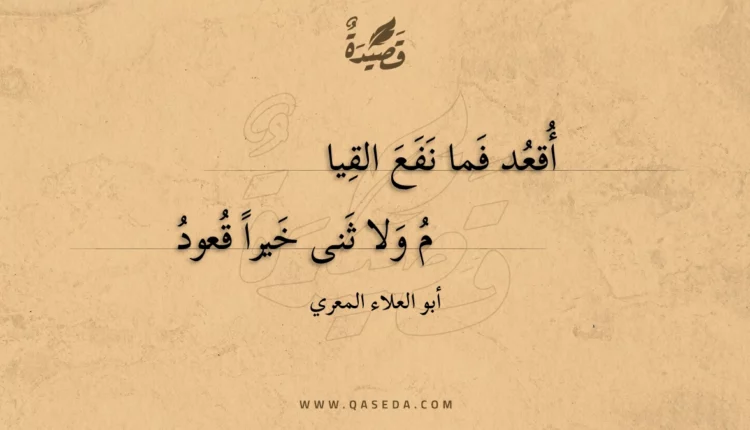 قَصِيدَةٌ
أُقعُد فَما نَفَعَ القِيا
مُ وَلا ثَنى خَيراً قُعودُ
أبو العلاء المعري
WWW.QASEDA.COM